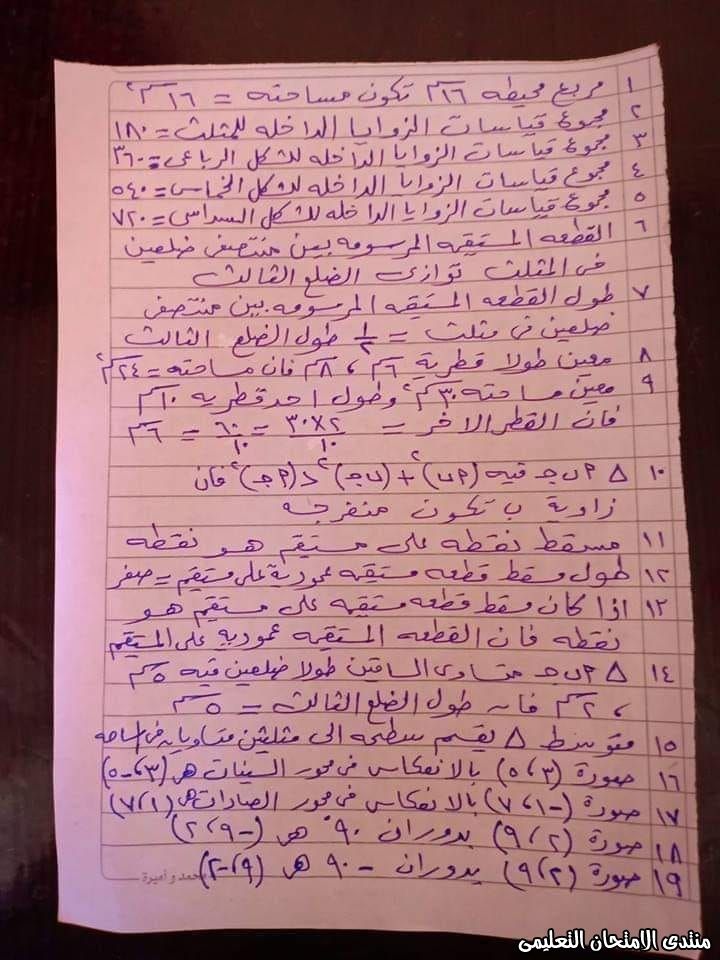 ١ مربع محيطه ١٦سم تكون مساحته = ١٦سم٢
٢ مجموع قياسات الزوايا الداخله للمثلث = ١٨٠
٣ مجموع قياسات الزوايا الداخله للشكل الرباعى = ٣٦٠
٤ مجموع قياسات الزوايا الداخله للشكل الخماسى = ٥٤٠
٥ مجموع قياسات الزوايا الداخله للشكل السداسى = ٧٢٠
٦ القطعه المستقيمه المرسومه بين منتصفى ضلعين
فى المثلث توازى الضلع الثالث
٧ طول القطعه المستقيمه المرسومه بين منتصفى
ضلعين فى مثلث = ١/٢ طول الضلع الثالث
٨ معين طولا قطرية ٦سم ، ٨سم فان مساحته = ٢٤سم٢
٩ معين مساحته ٣٠سم٢ وطول احد قطريه ١٠سم
فان القطر الاخر = ٣٠×٢/١٠ = ٦٠/١٠ = ٦سم
١٠ △ ٢ب جـ فيه (٢ب)٢ + (ب جـ)٢ < (٢جـ)٢ فان
زاوية ب تكون منفرجه
١١ مسقط نقطه على مستقيم هو نقطه
١٢ طول مسقط قطعه مستقيمه عمودية على مستقيم = صفر
١٣ اذا كان مسقط قطعه مستقيمه على مستقيم هو
نقطه فان القطعه المستقيمه عموديه على المستقيم
١٤ △ ٢ب جـ متساوى الساقين طولا ضلعين فيه ٥سم
، ٢سم فان طول الضلع الثالث = ٥سم
١٥ متوسط △ يقسم سطحه الى مثلثين متساويان فى المساحه
١٦ صورة (٣،٥) بالانعكاس فى محور السينات هى (٣،-٥)
١٧ صورة (-١،٧) بالانعكاس فى محور الصادات هى (١،٧)
١٨ صورة (٢،٩) بدوران ٩٠° هى (-٩،٢)
١٩ صورة (٢،٩) بدوران -٩٠ هى (٩،-٢)
محمد و أميرة
منتدى الامتحان التعليمى